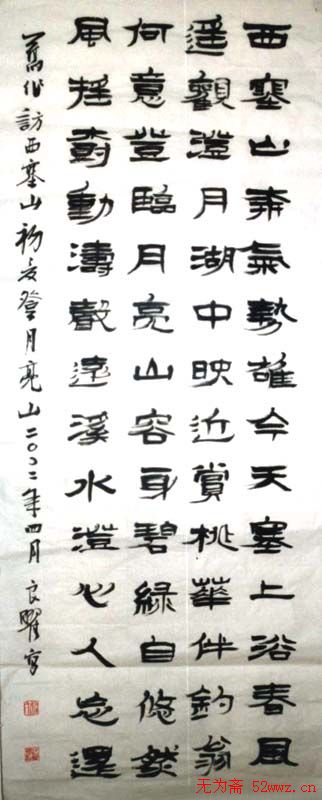 西塞山奔氣勢雄今天塞上浴春風
遥觀澄月湖中映近賞桃華伴釣翁
何意登臨月亮山容身碧綠自悠然
風摇樹動濤聲遠溪水澄心人忘還
舊作訪西塞山初夏登月亮山二〇〇二年四月良曜寫
无为斋 52wwz.cn